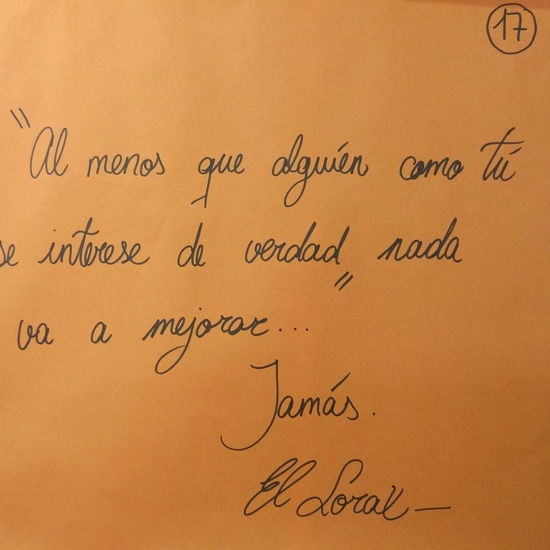 17
"Al menos que alguién como tú
se interese de verdad, nada
va a mejorar..."
Jamás.
El Lorax-